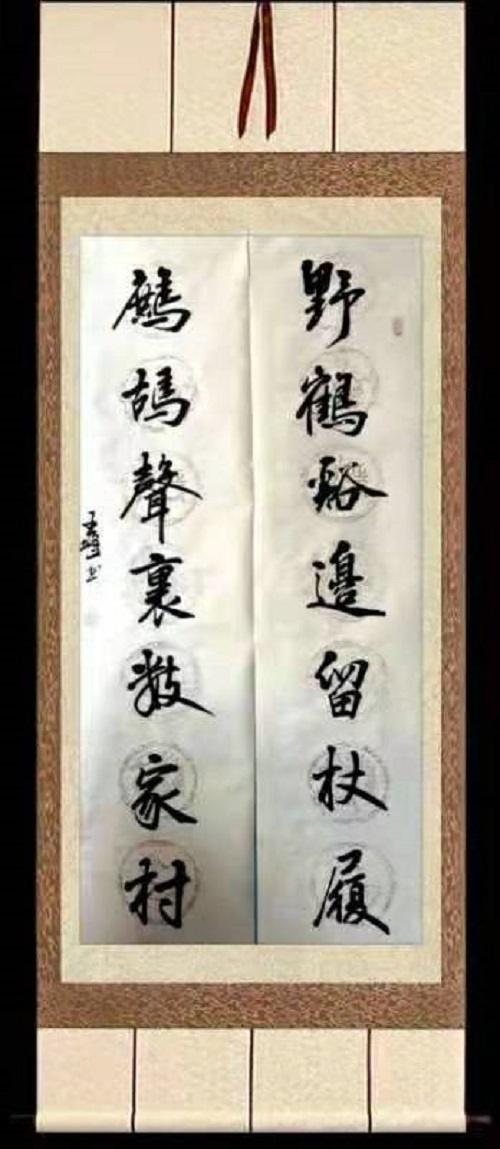 野鶴谿邊留杖履
鷓鴣聲裏數家村